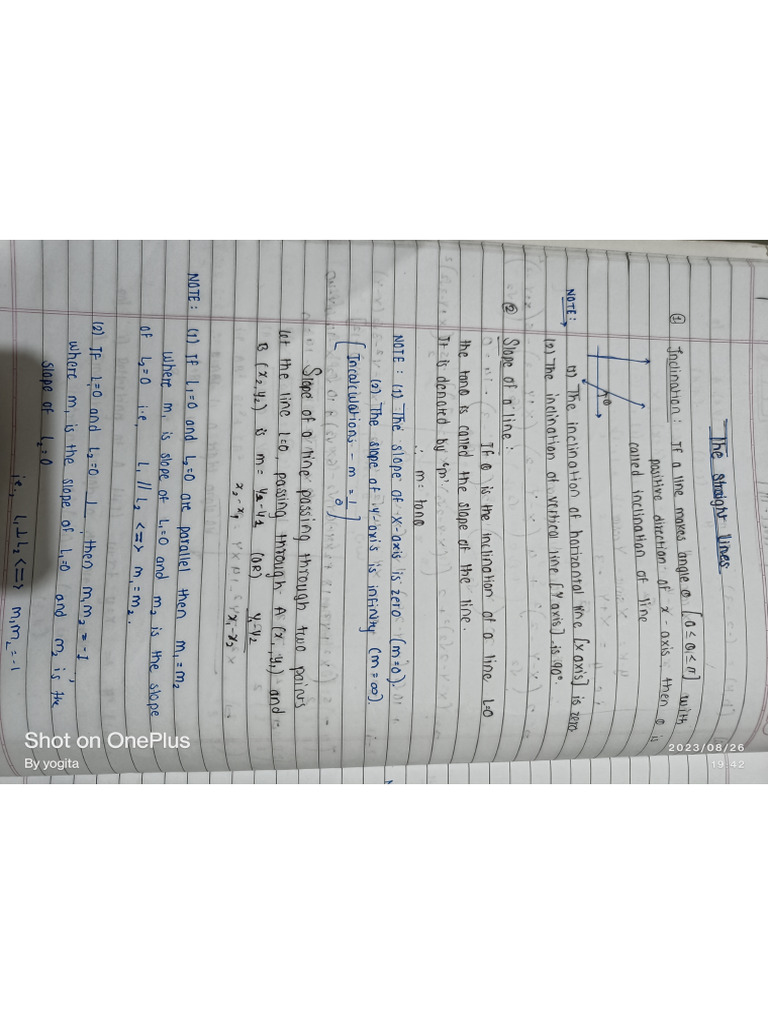 The Straight lines
① Inclination : If a line makes angle θ [0 ≤ θ ≤ π] with
positive direction of x - axis, then θ is
called inclination of line
θ
NOTE : (1) The inclination of horizontal line [X axis] is zero
(2) The inclination of vertical line [Y axis] is 90°.
② Slope of a line :
If θ is the inclination of a line L=0
the tanθ is called the slope of the line.
It is denoted by 'm'
∴ m = tanθ
NOTE : (1) The slope of x-axis is zero (m=0).
(2) The slope of Y-axis is infinity (m=∞).
[In calculations - m = 1/0]
Slope of a line passing through two points
let the line L=0, passing through A (x, y₁) and
B (x₂, y₂) is m = y₂-y₁ / x₂-x₁ (OR) y₁-y₂ / x₁-x₂
NOTE : (1) If L₁=0 and L₂=0 are parallel then m₁=m₂
where m₁ is slope of L₁=0 and m₂ is the slope
of L₂=0 i.e, L₁ // L₂ <=> m₁=m₂.
(2) If L₁=0 and L₂=0 ⊥, then m₁m₂=-1,
where m₁ is the slope of L₁=0 and m₂ is the
slope of L₂=0
i.e., L₁⊥L₂ <=> m₁m₂=-1
Shot on OnePlus
By yogita
2023/08/26
19:42